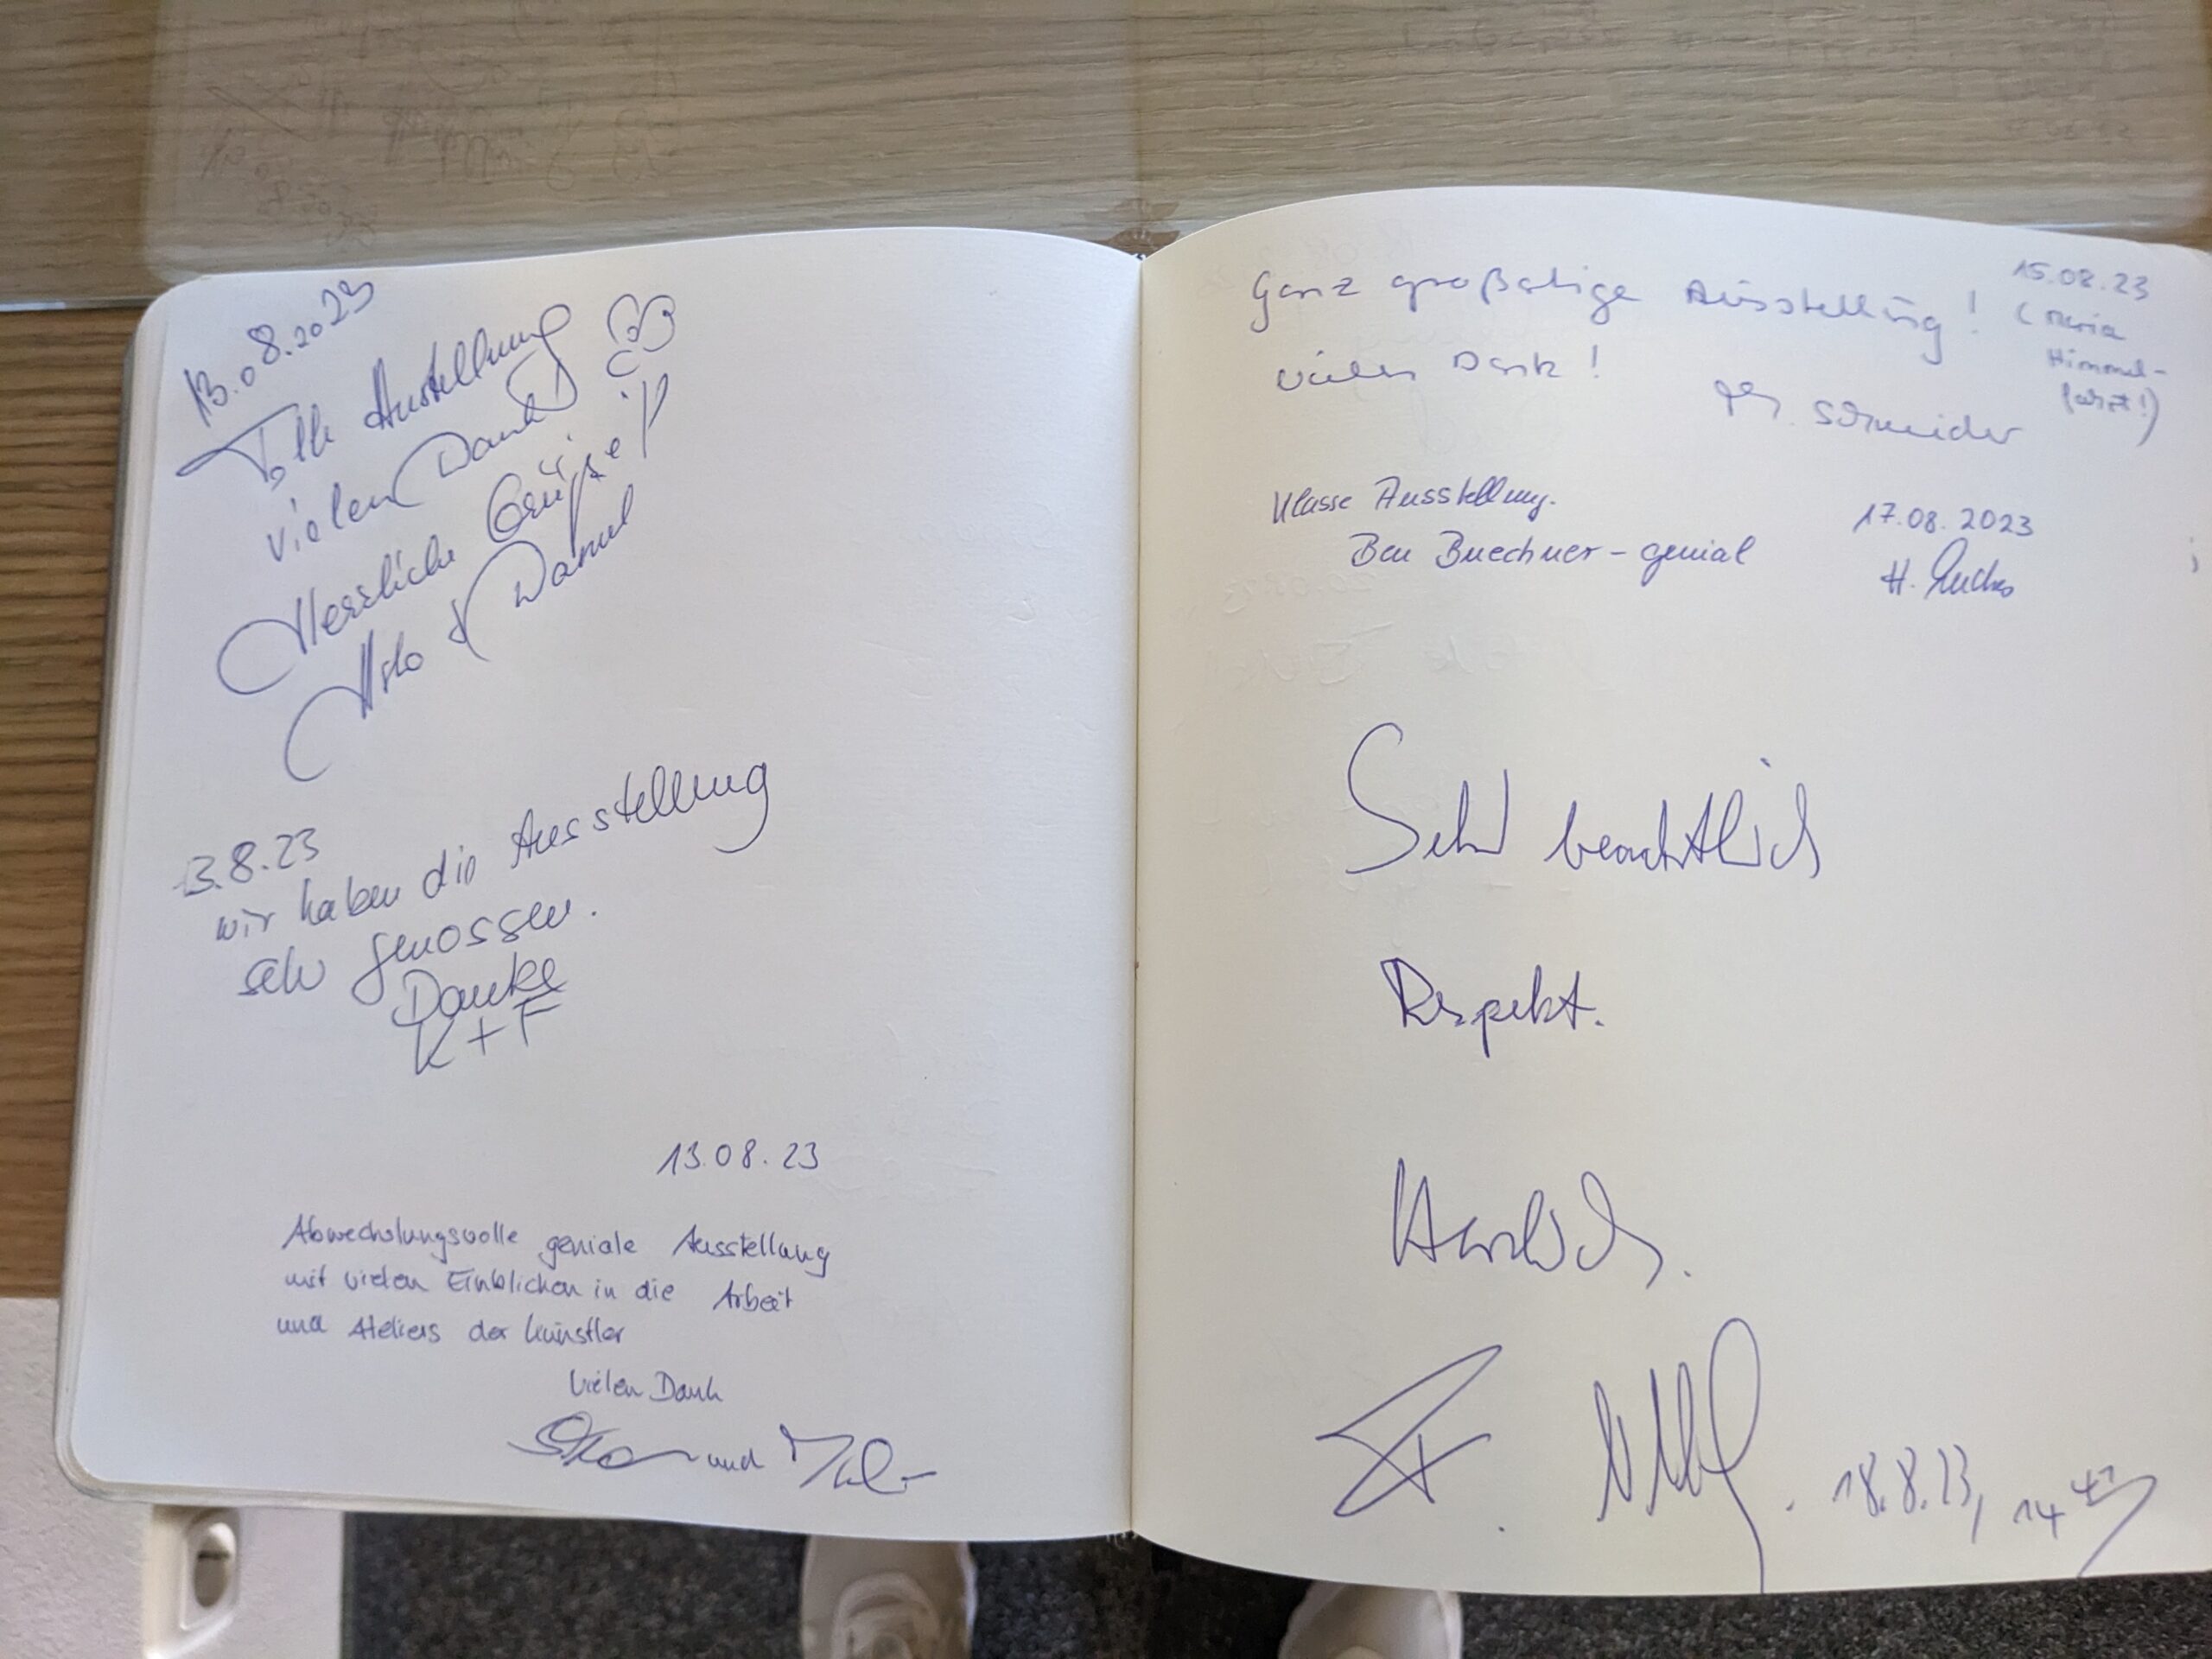 13.08.2023
Tolle Austellung
vielen Dank
Herzliche Grüße
&
3.8.23
wir haben die Ausstellung
sehr genossen.
Danke
K + F
13.08.23
Abwechslungsvolle geniale Ausstellung
mit vielen Einblicken in die Arbeit
und Ateliers der Künstler
Vielen Dank
und
Ganz großartige Ausstellung!
vielen Dank!
15.08.23
(Maria
Himmel-
fahrt!)
Schneider
Klasse Ausstellung.
Ben Buechner - genial
17.08.2023
H.
Sehr beachtlich
Respekt.
Herzlich.
18.8.23, 14